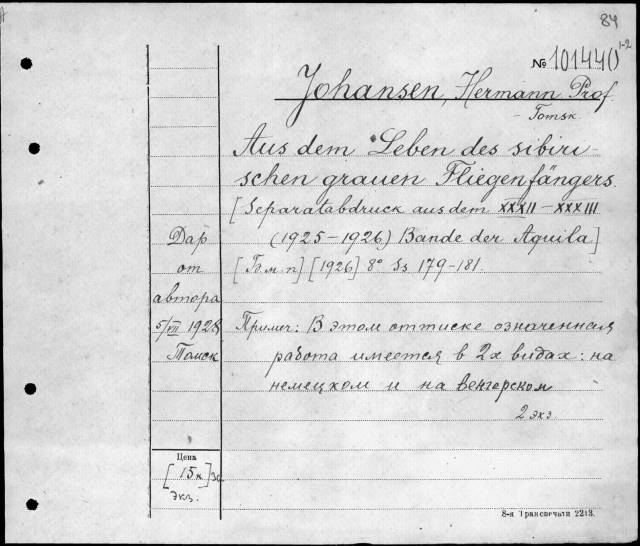 84
№ 101440 1-2
Johansen, Hermann Prof.
- Tomsk.
Aus dem Leben des sibiri-
schen grauen Fliegenfängers.
[Separatabdruck aus dem XXXII - XXXIII
(1925-1926) Bande der Aquila]
[1926] 8° Ss 179-181.
Дар
от
автора
5/VII 1928
Томск
Примеч: В этом оттиске означенная
работа имеется в 2х видах: на
немецком и на венгерском
2 экз
Цена
[15к] за
экз.
8-я Транспечати 2213.